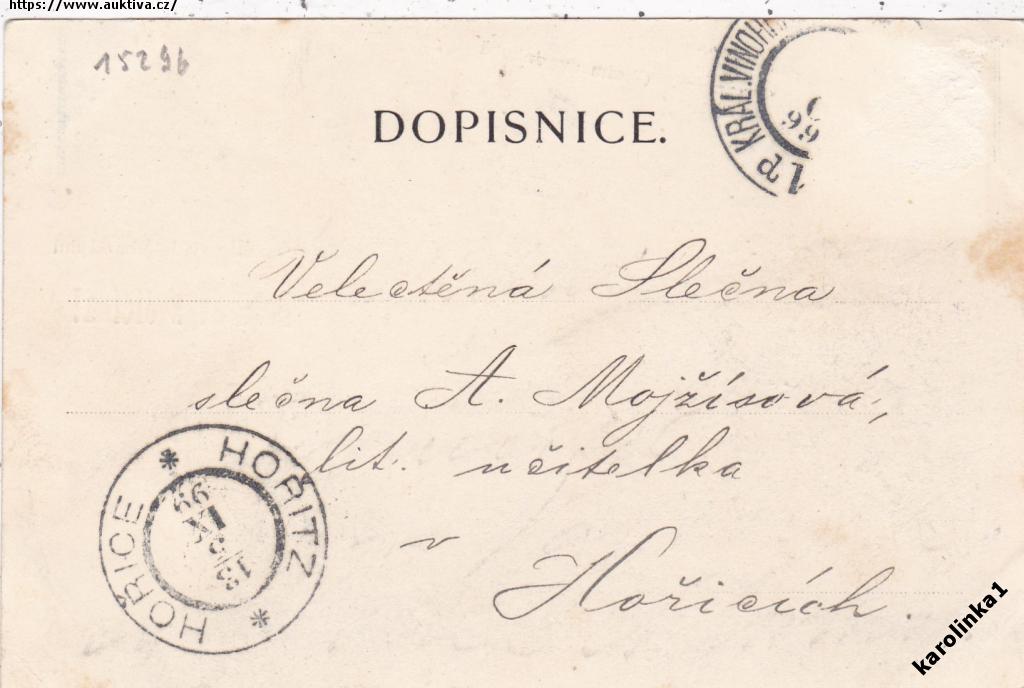 https://www.auktiva.cz/
15296
DOPISNICE.
KRÁL. VINOH
99
Velectěná Slečna
slečna A. Mojžísová,
lit. učitelka
v
Hořicích.
* HOŘITZ * HOŘICE
13
99
karolinka1